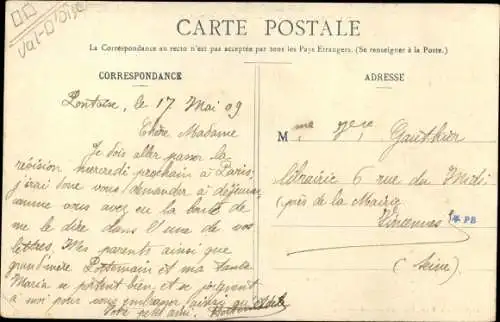 Val-d'Oise
CARTE POSTALE
La Correspondance au recto n'est pas acceptée par tous les Pays Etrangers. (Se renseigner à la Poste.)
CORRESPONDANCE
Pontoise, le 17 Mai 09
Chère Madame
Je dois aller passer la
révision mercredi prochain à Paris,
j'irai donc vous demander à déjeuner
comme vous avez eu la bonté de
me le dire dans l'une de vos
lettres. Mes parents ainsi que
grand'mère Pottemain et ma tante
Maria se portent bien, et se joignent
à moi pour vous embrasser, ainsi qu'
Votre petit ami.
ADRESSE
Mme Vve Gauthier
librairie 6 rue du Midi
(près de la Mairie)
Vincennes
PB
(Seine)